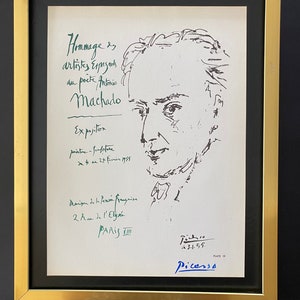 Hommage des
artistes Espagnols
au poète Antonio
Machado
Exposition
peinture - sculpture
du 4 au 25 février 1955
Maison de la Pensée Française
2 Rue de l'Elysée
PARIS VIII
Picasso
Picasso